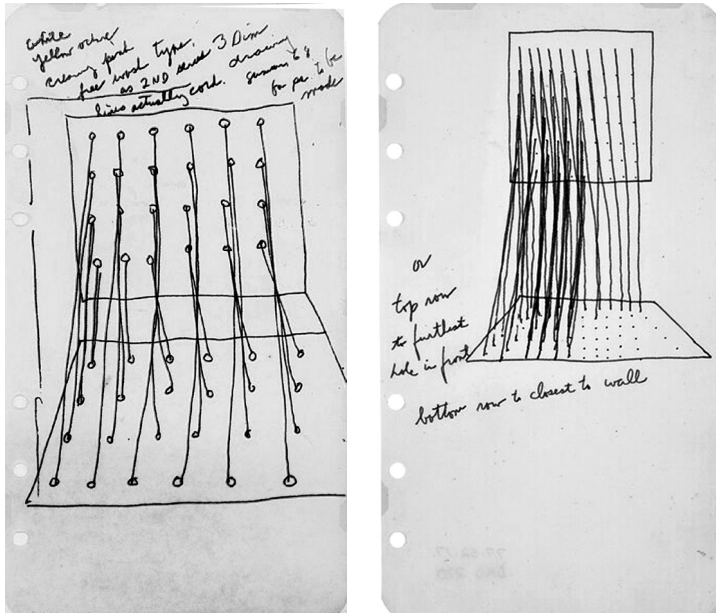 white
yellow ochre
creamy pink
free wash type.
as 2ND series 3 Dim
drawing
lines actually cord.
summer 68
for pc. to be
made
or
top row
to furthest
hole in front
bottom row to closest to wall